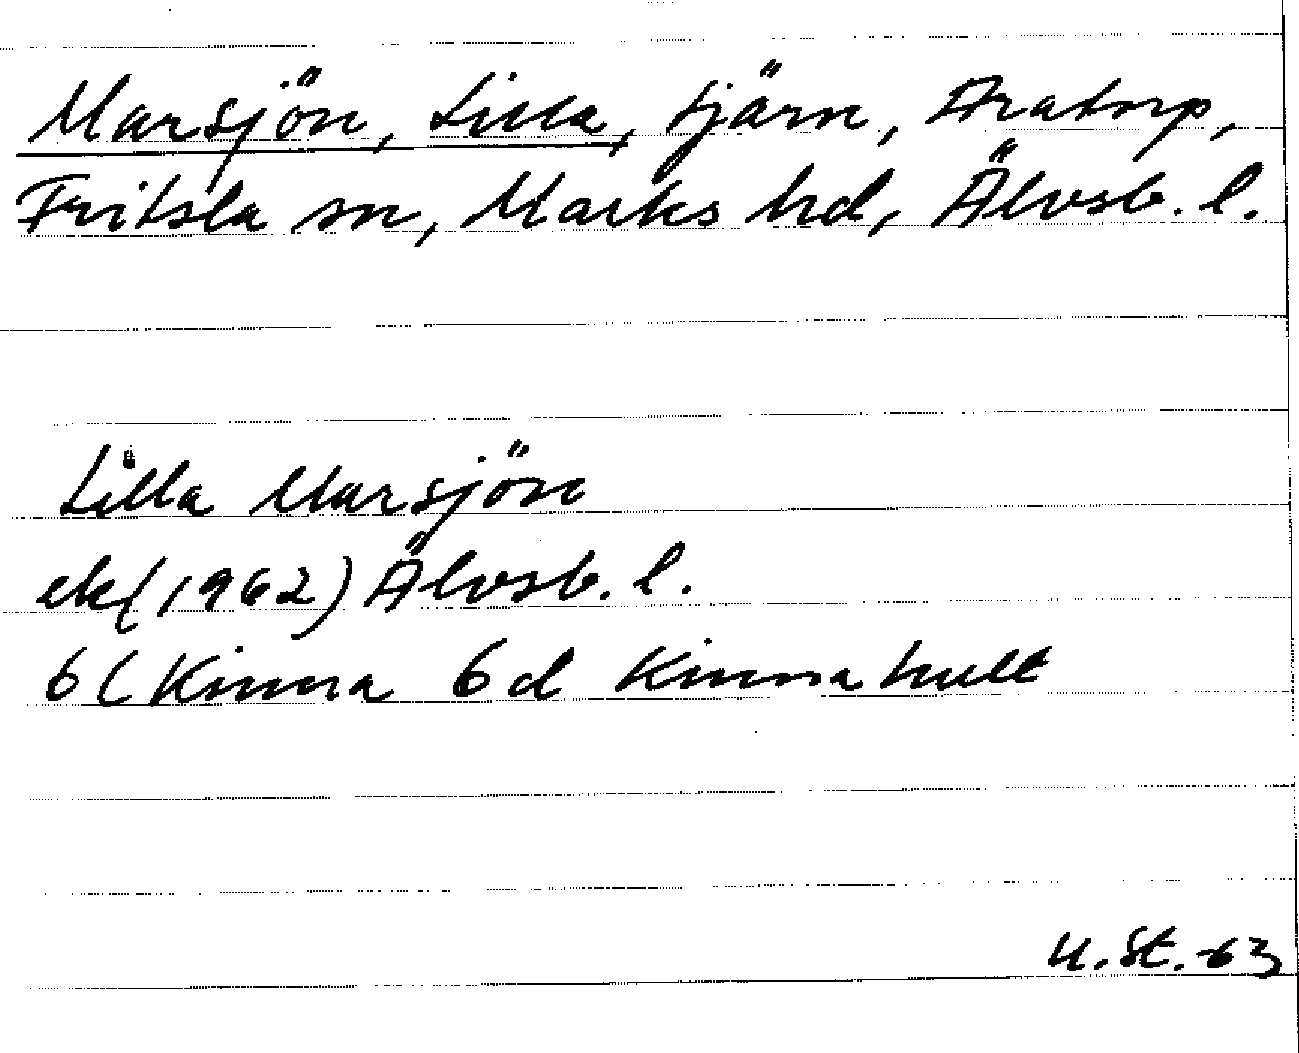 Marsjön, Lilla, tjärn, Aratorp,
Fritsla sn, Marks hd, Älvsb. l.
Lilla Marsjön
ek (1962) Älvsb. l.
6C Kinna 6d Kinnahult
U. St. -63